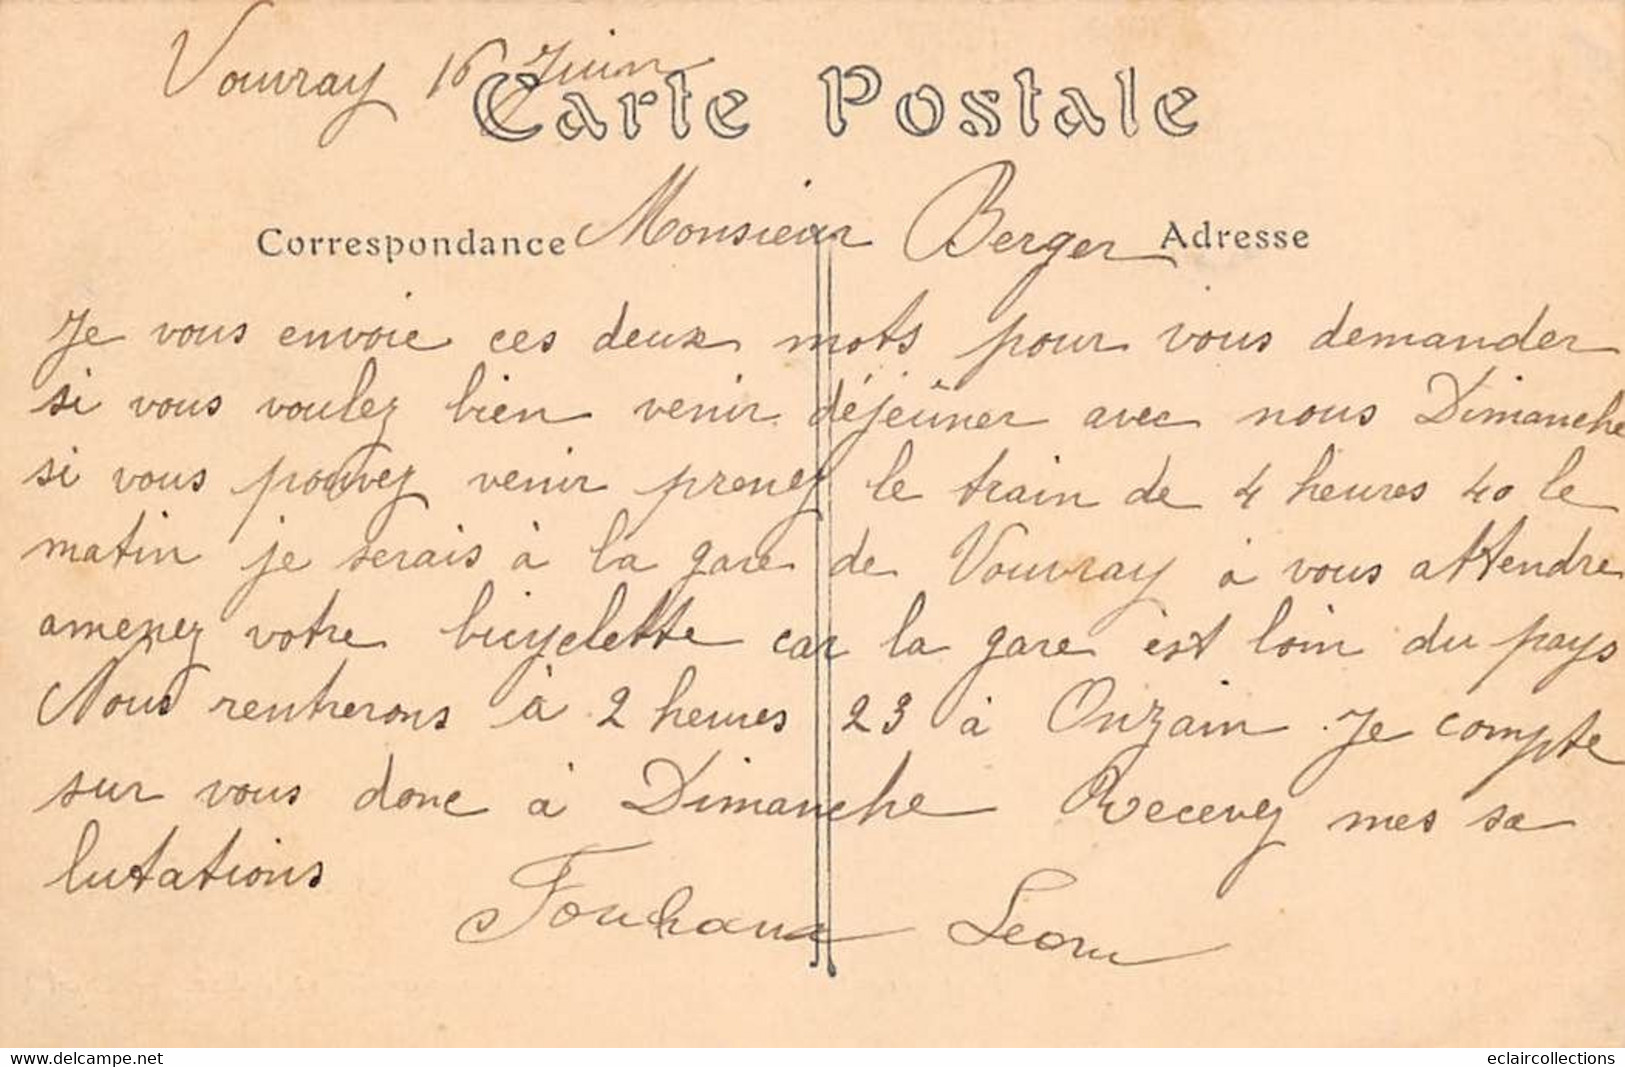 Vouvray 16 Juin
Carte Postale
Correspondance Monsieur Berger Adresse
Je vous envoie ces deux mots pour vous demander
si vous voulez bien venir déjeûner avec nous Dimanche
si vous pouvez venir prenez le train de 4 heures 40 le
matin je serais à la gare de Vouvray à vous attendre
amenez votre bicyclette car la gare est loin du pays
Nous rentrerons à 2 heures 23 à Onzain. Je compte
sur vous donc à Dimanche Recevez mes sa
lutations
Leon
www.delcampe.net
eclaircollections